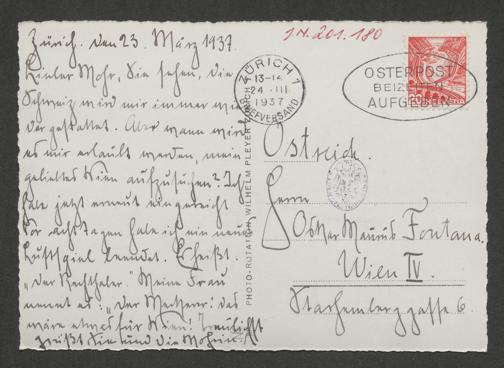 Zürich. den 23. März 1937.
Lieber Mohr, Sie sehen, die
Schweiz wird mir immer wie-
der gestattet. Aber wann wird
es mir erlaubt werden, mein
geliebtes Wien aufzusuchen? Ich
habe jetzt erneut eingereicht
Vor acht Tagen habe ich ein neues
Lustspiel beendet. Es heißt:
"Der Rechthaber." Meine Frau
nennt es: "Der Meckerer": das
wäre etwas für Wien! Treulichst
grüßt Sie und die Mohrin
I.N. 201.180
ZÜRICH 1
13-14
24.III
1937
BRIEFVERSAND
OSTERPOST
BEIZEITEN
AUFGEBEN
HELVETIA
PHOTO-ROTATION, WILHELM PLEYER, ZÜRICH
Östreich.
Herrn
Oskar Maurus Fontana.
Wien IV.
Starhemberggasse 6.